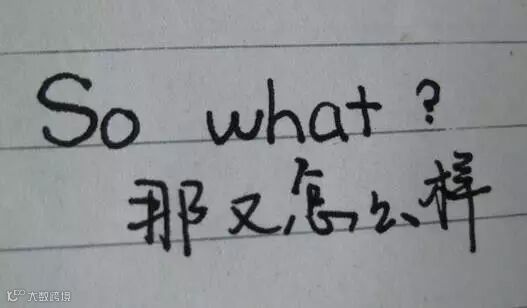 So what?
那又怎么样
大数跨境